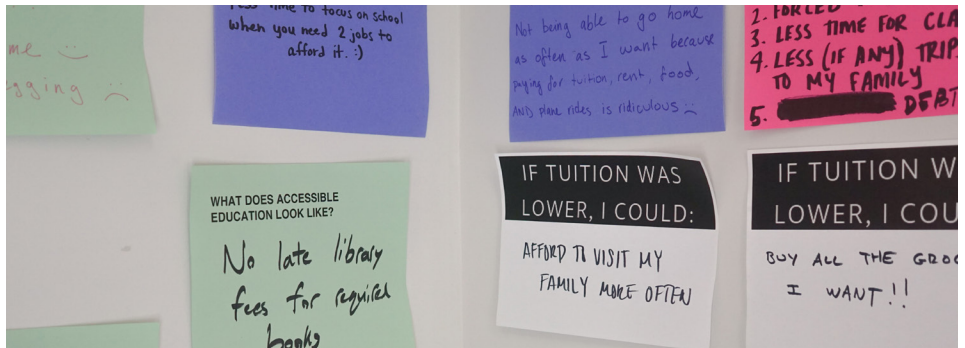 me :)
gging :(
less time to focus on school
when you need 2 jobs to
afford it. :)
Not being able to go home
as often as I want because
paying for tuition, rent, food,
AND plane rides is ridiculous :(
2. FORCED
3. LESS TIME FOR CLA
4. LESS (IF ANY) TRIPS
TO MY FAMILY
5. DEBT
WHAT DOES ACCESSIBLE
EDUCATION LOOK LIKE?
No late library
fees for required
books
IF TUITION WAS
LOWER, I COULD:
AFFORD TO VISIT MY
FAMILY MORE OFTEN
IF TUITION W
LOWER, I COU
BUY ALL THE GROC
I WANT!!